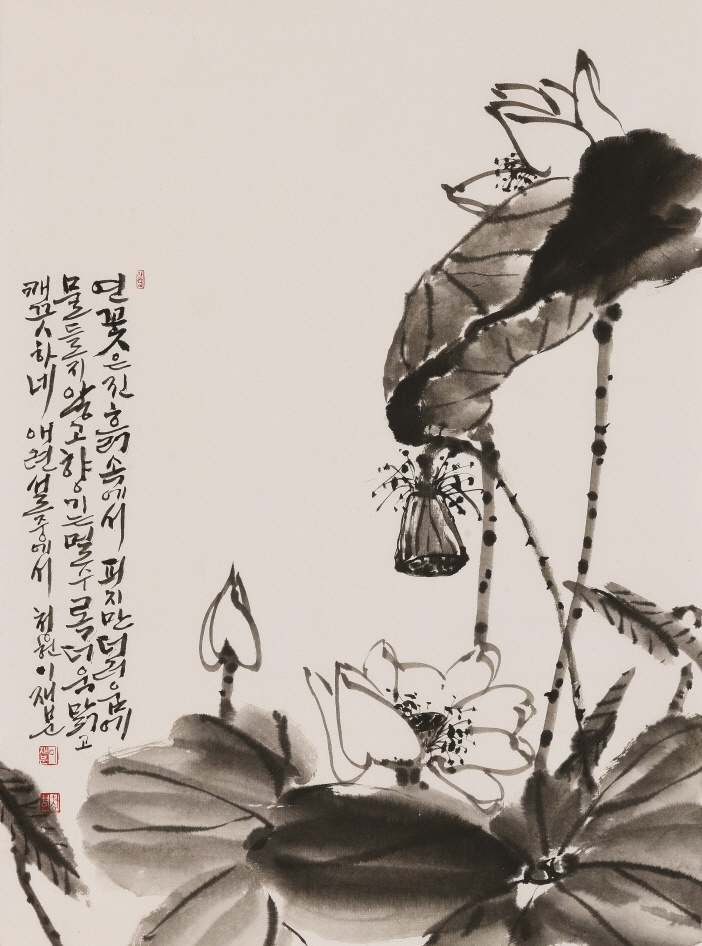 연꽃은 진흙 속에서 피지만 더러움에
물들지 않고 향기는 멀수록 더욱 맑고
깨끗하네 애련설 중에서 청원 이재분